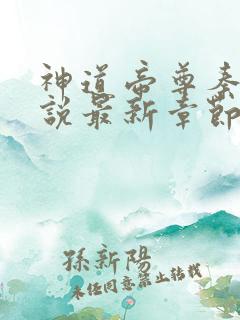 神道帝尊秦
說最新章節
孫新陽
未经同意禁止转载